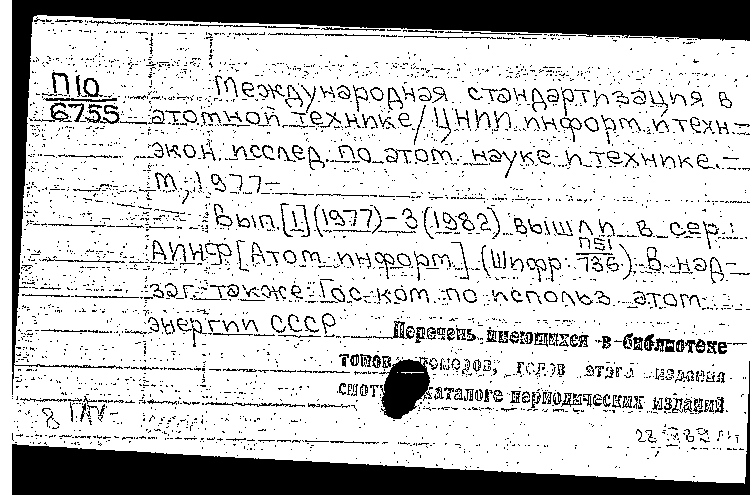 П10
6755
Международная стандартизация в
атомной технике/ЦНИИ информ. и техн-
экон. исслед. по атом. науке и технике.-
М, 1977-
Вып. [1] (1977)-3 (1982) вышли в сер.:
АИНФ [Атом. информ.] (Шифр: П51/736). В над-
заг. также: Гос. ком. по использ. атом.
энергии СССР
Перечень имеющихся в библиотеке
томов, номеров, годов этого издания
смотри каталоге периодических изданий